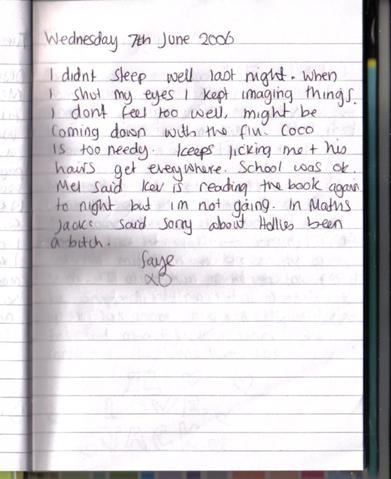 Wednesday 7th June 2006
I didnt sleep well last night. When
I shut my eyes I kept imaging things.
I dont feel too well, might be
coming down with the flu. Coco
is too needy. Keeps licking me + his
hairs get everywhere. School was ok.
Mel said Kev is reading the book again
to night but im not going. In Maths
Jacks said sorry about Hollies been
a bitch.
Faye
XO